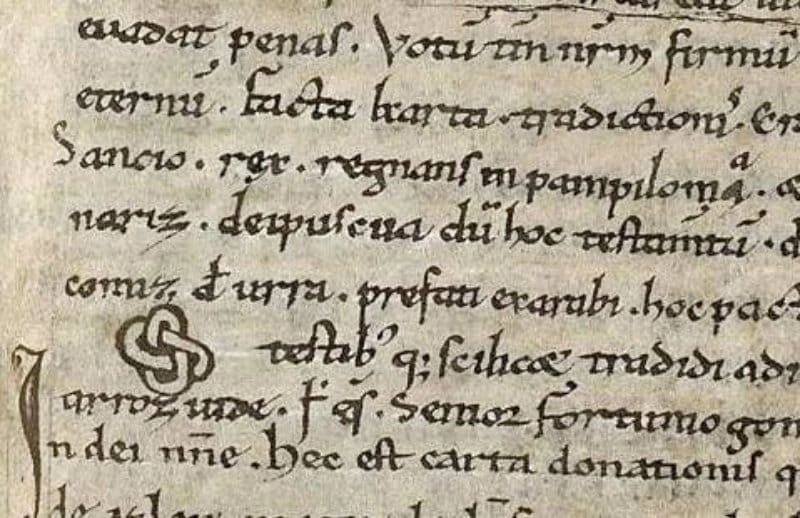 euadat penas. Votū tīn nrm̄ firmū
eternū. Facta karta tradictionis. Er
Sancio. rex. regnans in pampilonia.
nariz. deipuscua dū hoc testam̄tū. d
comiz, đ urra. prefati exarabi. hoc pact
testib' q; scilicæ tradidi adi
arroz uide. Senior fortunio gon
In dei nn̄e. Hec est carta donationis q